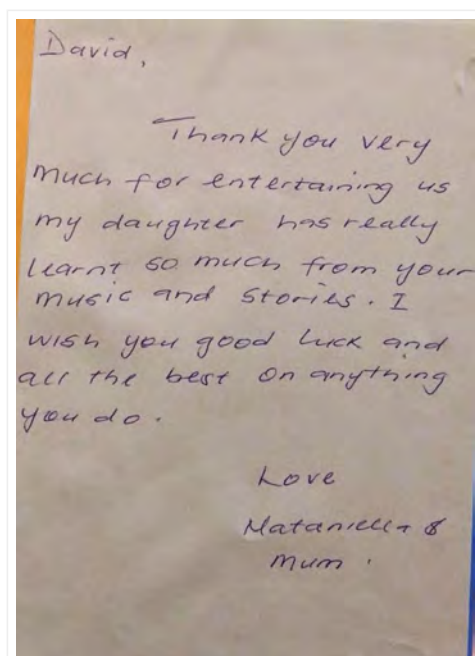 David,
Thank you very
much for entertaining us
my daughter has really
learnt so much from your
music and stories. I
wish you good luck and
all the best on anything
you do.
Love
&
Mum.